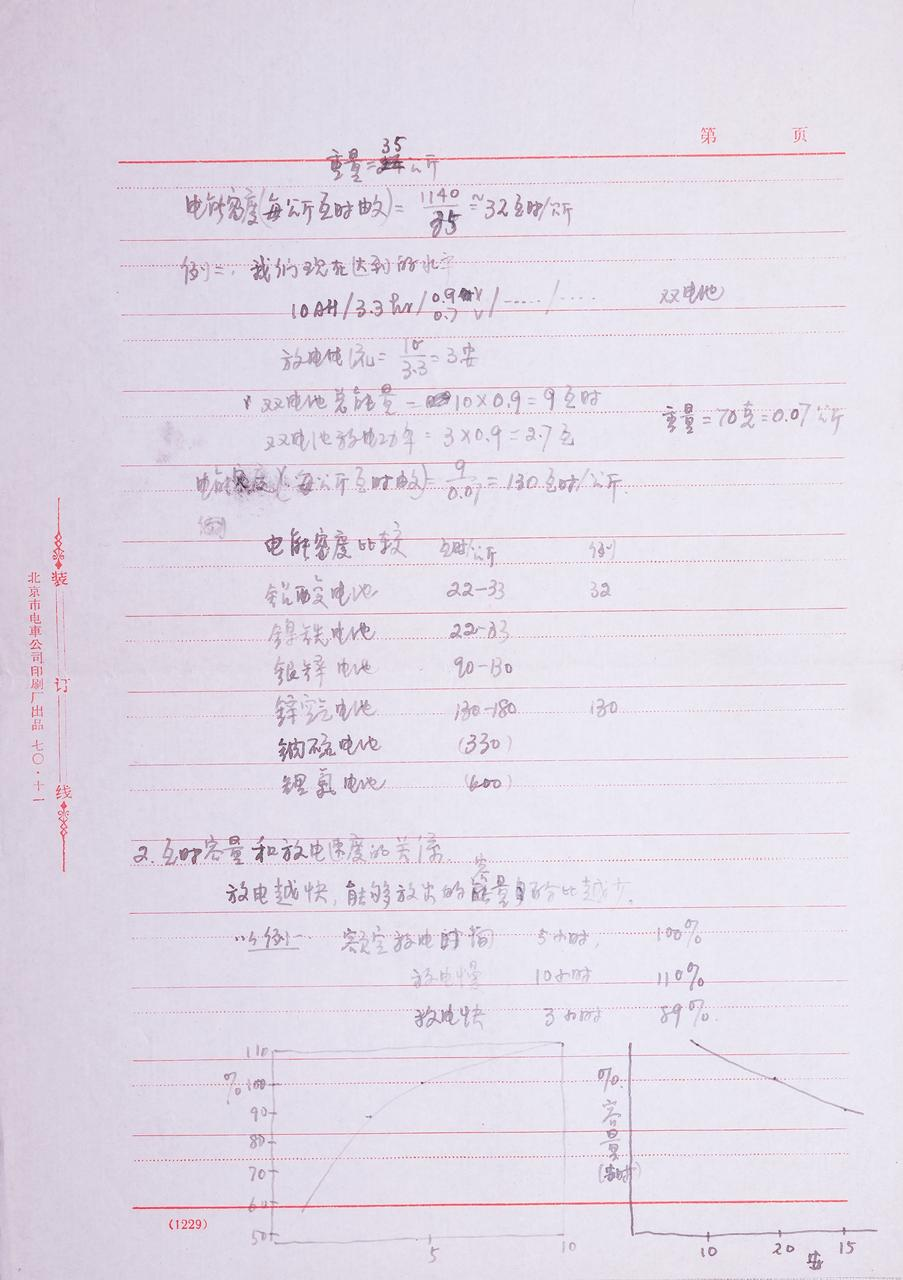 第 页
重量=35公斤
电能密度(每公斤瓦时数)= 1140/35 ≈ 32瓦时/公斤
例二. 我们现在达到的水平
10AH/3.3hr/0.9V 0.7V/...../.... 双电池
放电电流= 10/3.3 = 3安
双电池总能量 = 10×0.9 = 9瓦时
重量=70克=0.07公斤
双电池放电功率 = 3×0.9=2.7瓦
电能密度(每公斤瓦时数)= 9/0.07 = 130瓦时/公斤.
例
电能密度比较 瓦时/公斤 例
铅酸电池 22-33 32
镍铁电池 22-33
银锌电池 90-130
锌空气电池 130-180 130
钠硫电池 (330)
锂氯电池 (600)
2. 瓦时容量和放电速度的关系.
放电越快,能够放出的容量百分比越少.
以例一 额定放电时间 5小时, 100%
放电慢 10小时 110%
放电快 3小时 89%.
110
% 100
90
80
70
60
50
5 10
% 容量(安时)
10 20 15
安
(1229)
装 订 线
北京市电車公司印刷厂出品 七〇·十一